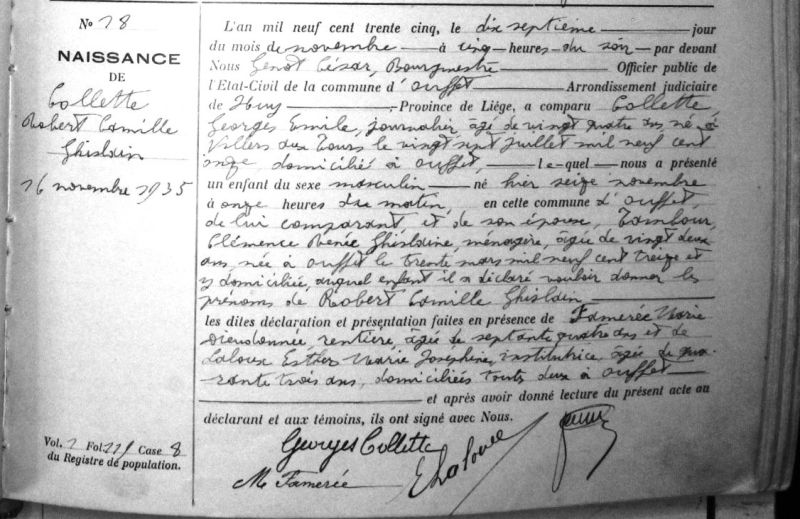 No 28
NAISSANCE
DE
Collette
Robert Camille
Ghislain
16 novembre 1935
Vol. 2 Fol. 221 Case 8
du Registre de population.
L'an mil neuf cent trente cinq, le dix septième jour
du mois de novembre à cinq heures du soir par devant
Nous Genot César, Bourgmestre Officier public de
l'Etat-Civil de la commune d'Ouffet Arrondissement judiciaire
de Huy, Province de Liége, a comparu Collette,
Georges Emile, journalier, âgé de vingt quatre ans né à
Villers aux Tours le vingt sept juillet mil neuf cent
onze domicilié à Ouffet, le-quel nous a présenté
un enfant du sexe masculin né hier seize novembre
à onze heures du matin, en cette commune d'Ouffet,
de lui comparant et de son épouse, Tambour,
Clémence Renée Ghislaine, ménagère, âgée de vingt deux
ans née à Ouffet le trente mars mil neuf cent treize et
y domiciliée, auquel enfant il a déclaré vouloir donner les
prénoms de Robert Camille Ghislain
les dites déclaration et présentation faites en présence de Famerée Marie
Dieudonnée rentière, âgée de septante quatre ans et de
Laloux Esther Marie Joséphine, institutrice, âgée de qua-
rante trois ans, domiciliées toutes deux à Ouffet
et après avoir donné lecture du présent acte au
déclarant et aux témoins, ils ont signé avec Nous.
Georges Collette
M Famerée
E Laloux